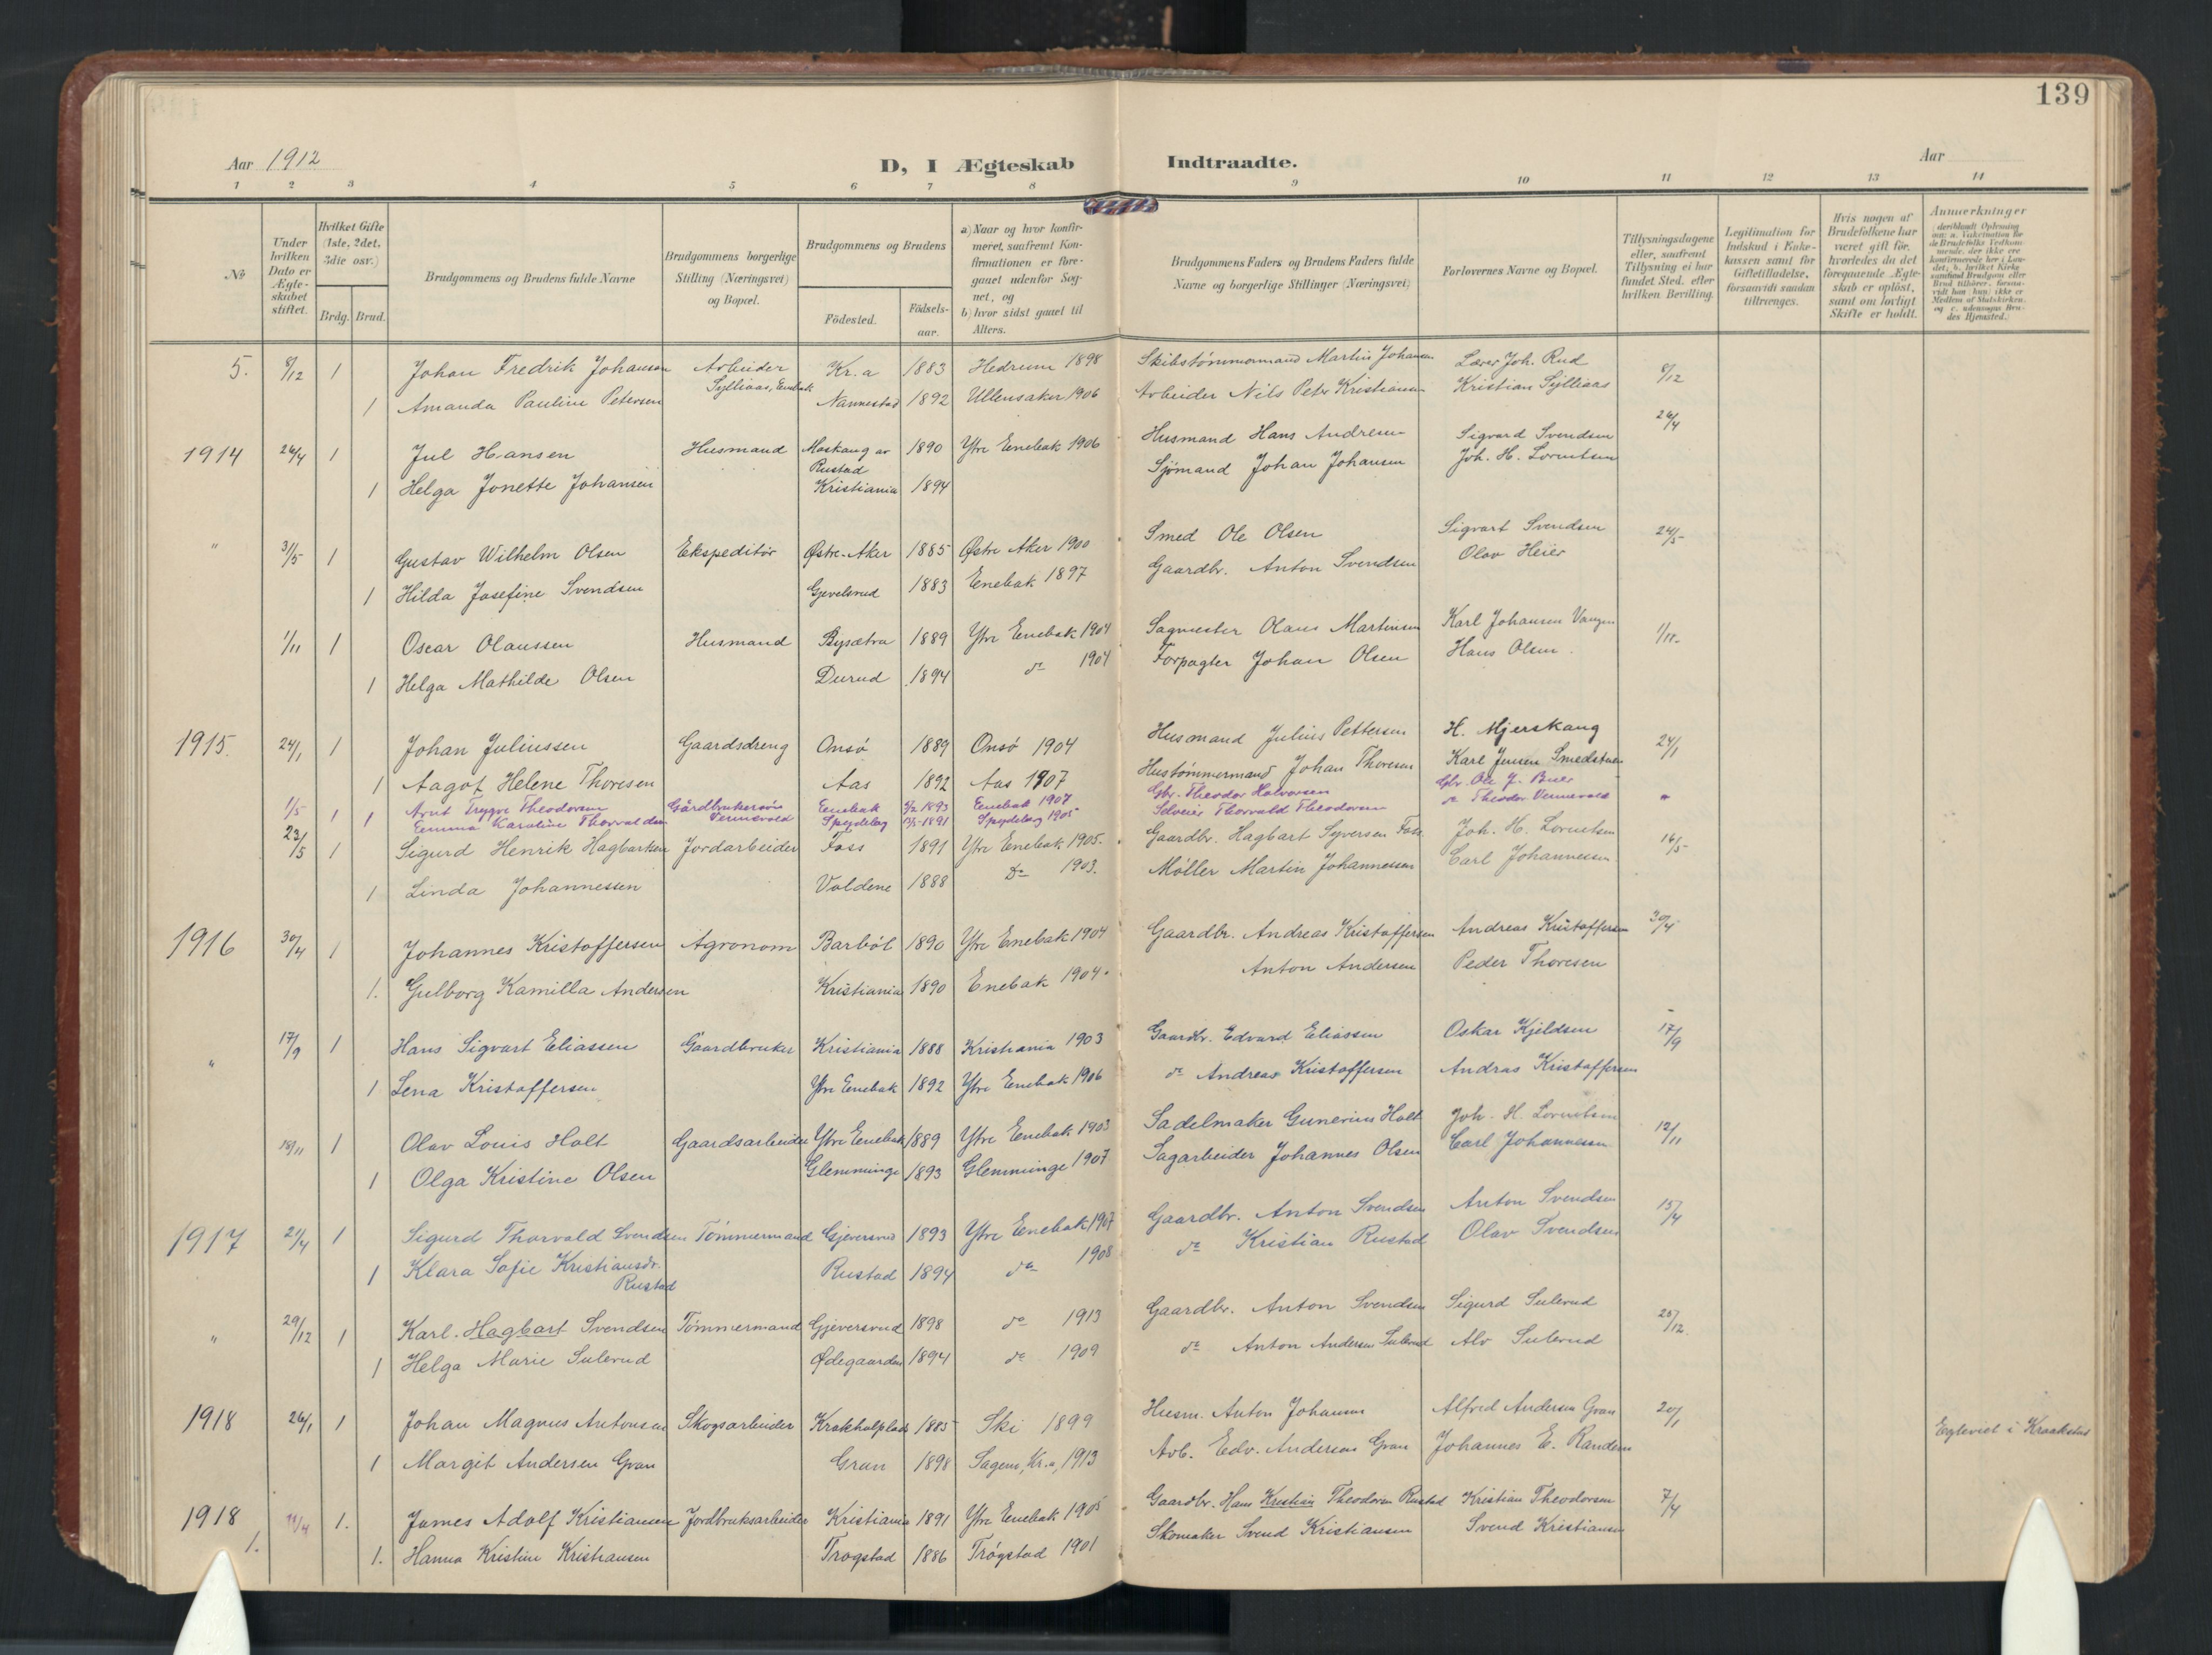 139
Aar 1912
D, I Ægteskab Indtraadte.
Aar
1 2 3 4 5 6 7 8 9 10 11 12 13 14
No
Under hvilken Dato er Ægteskabet stiftet.
Hvilket Gifte (1ste, 2det, 3die osv.)
Brdg. Brud.
Brudgommens og Brudens fulde Navne
Brudgommens borgerlige Stilling (Næringsvei) og Bopæl.
Brudgommens og Brudens
Fødested.
Fødselsaar.
a) Naar og hvor konfirmeret, saafremt Konfirmationen er foregaaet udenfor Sognet, og
b) hvor sidst gaaet til Alters.
Brudgommens Faders og Brudens Faders fulde Navne og borgerlige Stillinger (Næringsvei)
Forlovernes Navne og Bopæl.
Tillysningsdagene eller, saafremt Tillysning ei har fundet Sted, efter hvilken Bevilling.
Legitimation for Indskud i Enkekassen samt for Giftetilladelse, forsaavidt saadan tiltrenges.
Hvis nogen af Brudefolkene har været gift før, hvorledes da det foregaaende Ægteskab er opløst, samt om lovligt Skifte er holdt.
Anmærkninger
(deriblandt Oplysning om: a. Vakcination for de Brudefolks Vedkommende, der ikke ere konfirmerede her i Landet; b. hvilket Kirkesamfund Brudgom eller Brud tilhører, forsaavidt han (hun) ikke er Medlem af Statskirken, og c. udensogns Brudes Hjemsted.)
5. 8/12 1 Johan Fredrik Johansen Arbeider Kr.a 1883 Hedrum 1898 Skibstømmermand Martin Johansen Lærer Joh. Rud 8/12
Sylliaas, Enebak
1 Amanda Pauline Petersen Nannestad 1892 Ullensaker 1906 Arbeider Nils Peter Kristiansen Kristian Sylliaas
1914 26/4 1 Jul Hansen Husmand Moskaug av Rustad 1890 Ytre Enebak 1906 Husmand Hans Andresen Sigvard Svendsen 26/4
1 Helga Jonette Johansen Kristiania 1894 Sjømand Johan Johansen Joh. H. Lorentsen
" 31/5 1 Gustav Wilhelm Olsen Ekspeditør Østre-Aker 1885 Østre Aker 1900 Smed Ole Olsen Sigvart Svendsen 24/5
1 Hilda Josefine Svendsen Gjevelsrud 1883 Enebak 1897 Gaardbr. Anton Svendsen Olav Heier
1/11 1 Oscar Olaussen Husmand Bysætra 1889 Ytre Enebak 1904 Sagmester Olaus Martinsen Karl Johansen Vangen 1/11
1 Helga Mathilde Olsen Durud 1894 do 1904 Forpagter Johan Olsen Hans Olsen.
1915. 24/1 1 Johan Juliussen Gaardsdreng Onsø 1889 Onsø 1904 Husmand Julius Pettersen H. Mjerskaug 24/1
1 Aagot Helene Thoresen Aas 1892 Aas 1907 Hustømmermand Johan Thoresen Karl Jensen Smedstuen
1/5 1 Arnt Trygve Theodorsen Gårdbrukersøn Enebak 1893 Enebak 1907 Gbr. Theodor Halvorsen Gbr. Ole J. Buer "
1 Emma Karoline Thorvaldsen Vennevold Spydeberg 1891 Spydeberg 1905 Selveier Thorvald Theodorsen do Theodor Vennevold
23/5 1 Sigurd Henrik Hagbartsen Jordarbeider Foss 1891 Ytre Enebak 1905. Gaardbr. Hagbart Syversen Foss Joh. H. Lorentsen 16/5
1 Linda Johannessen Voldene 1888 Do 1903. Møller Martin Johannessen Carl Johannessen
1916 30/4 1 Johannes Kristoffersen Agronom Barbøl 1890 Ytre Enebak 1904 Gaardbr. Andreas Kristoffersen Andreas Kristoffersen 30/4
1. Gulborg Kamilla Andersen Kristiania 1890 Enebak 1904. Anton Andersen Peder Thoresen
" 17/9 1 Hans Sigvart Eliassen Gaardbruker Kristiania 1888 Kristiania 1903 Gaardbr. Edvard Eliassen Oskar Kjeldsen 17/9
1 Lena Kristoffersen Ytre Enebak 1892 Ytre Enebak 1906 do Andreas Kristoffersen Andras Kristoffersen
18/11 1 Olav Louis Holt Gaardsarbeider Ytre Enebak 1889 Ytre Enebak 1903 Sadelmaker Gunerius Holt Joh. H. Lorentsen 12/11
1 Olga Kristine Olsen Glemminge 1893 Glemminge 1907 Sagarbeider Johannes Olsen Carl Johannessen
1917 21/4 1 Sigurd Thorvald Svendsen Tømmermand Gjeversrud 1893 Ytre Enebak 1907 Gaardbr. Anton Svendsen Anton Svendsen 15/4
1 Klara Sofie Kristiansdr. Rustad Rustad 1894 do 1908 do Kristian Rustad Olav Svendsen
" 29/12 1 Karl. Hagbart Svendsen Tømmermand Gjeversrud 1898 do 1913 Gaardbr. Anton Svendsen Sigurd Sulerud 25/12.
1 Helga Marie Sulerud Ødegaarden 1894 do 1909 do Anton Andersen Sulerud Alv Sulerud
1918 26/1 1 Johan Magnus Antonsen Skogsarbeider Krokholplads 1885 Ski 1899 Husm. Anton Johansen Alfred Andersen Gran 20/1
1 Margit Andersen Gran Gran 1898 Sagene, Kr.a, 1913 Arb. Edv. Andersen Gran Johannes E. Randem Egteviet i Kraakstad
1918 1. 11/4 1. James Adolf Kristiansen Jordbruksarbeider Kristiania 1891 Ytre Enebak 1905 Gaardbr. Hans Kristian Theodorsen Rustad Kristian Theodorsen 7/4
1. Hanna Kristine Kristiansen Trogstad 1886 Trøgstad 1901 Skomaker Svend Kristiansen Svend Kristiansen